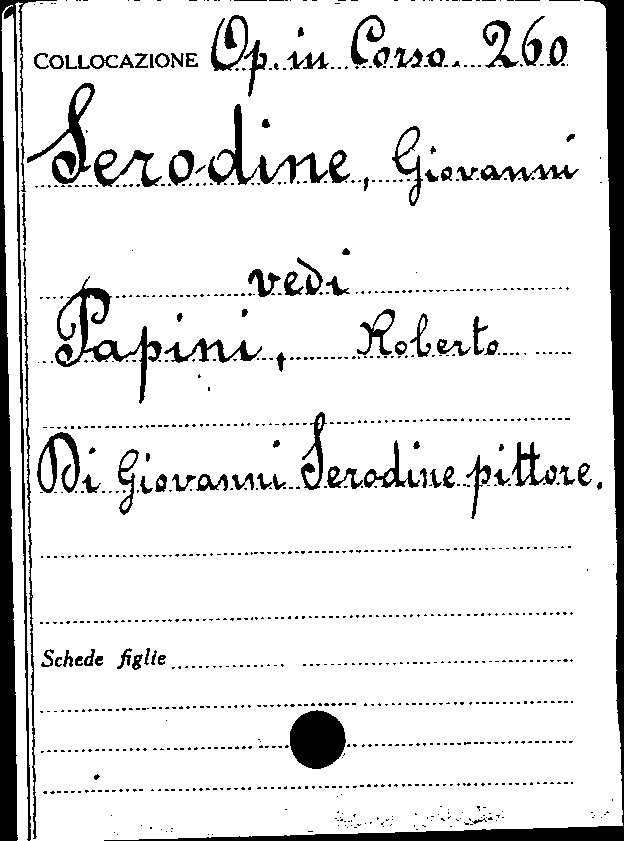 COLLOCAZIONE Op. in Corso. 260
Serodine, Giovanni
vedi
Papini, Roberto
Di Giovanni Serodine pittore.
Schede figlie